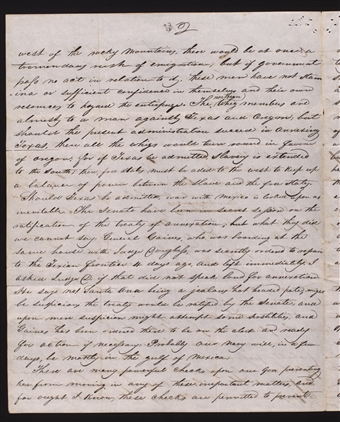 west of the rocky Mountains, there would be at once a
tremendous rush of emigration; but if government
pass no act in relation to it, these men have not stam
ina or sufficient confidence in themselves and their own
resources to hazard the enterprise. The Whig members are
almost to a man against Texas and Oregon, but
should the present administration succeed in annexing
Texas, then all the whigs would turn round in favor
of oregon; for if Texas be admitted Slavery is extended
to the South, then free states must be added to the west to keep up
a balance of power between the slave and the free states.
Should Texas be admitted, war with Mexico is looked upon
inevitable. The Senate have secret session on the
ratification of the treaty of annexation; but what they did
we cannot say. General Gaines, who was boarding at the
same house with Judge Douglass, was secretly ordered to repair
to the Texian frontier days ago, and left immediately. I
asked Judge D. if that did not speak loud for annexation
He says no; Santa Ana being a jealous hot headed fate, might
be suspicious the treaty would be ratified by the Senate, and
upon mere suspicion might attempt some hostilities, and
Gaines had been ordered there to be on the alert and ready
for action if necessary. Probably our navy will, in a few
days, be mostly in the gulf of Mexico.
There are many powerful checks upon our Gov. preventing
her from moving in any of these important matters, and
for ought I know, these checks are permitted to prevent